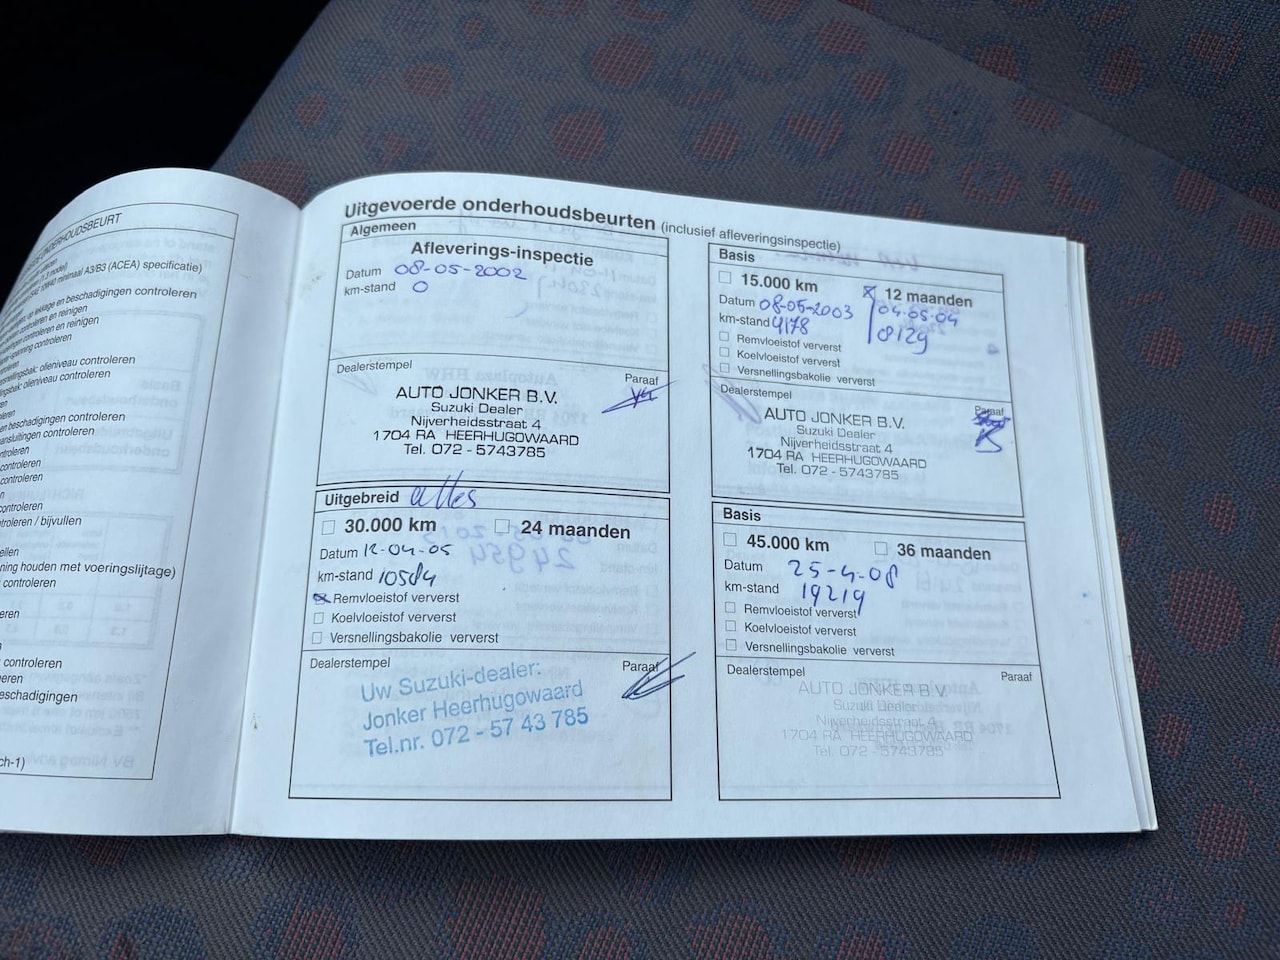 ONDERHOUDSBEURT
minimaal A3/B3 (ACEA) specificatie)
lekkage en beschadigingen controleren
controleren en reinigen
controleren en reinigen
controleren
olieniveau controleren
olieniveau controleren
en beschadigingen controleren
aansluitingen controleren
controleren
controleren
controleren
controleren
controleren / bijvullen
houden met voeringslijtage)
controleren
controleren
beschadigingen
Uitgevoerde onderhoudsbeurten (inclusief afleveringsinspectie)
Algemeen
Afleverings-inspectie
Datum 08-05-2002
km-stand 0
Dealerstempel
Paraaf
AUTO JONKER B.V.
Suzuki Dealer
Nijverheidsstraat 4
1704 RA HEERHUGOWAARD
Tel. 072 - 5743785
Basis
15.000 km 12 maanden
Datum 08-05-2003 04-05-04
km-stand 4178 8129
Remvloeistof ververst
Koelvloeistof ververst
Versnellingsbakolie ververst
Dealerstempel
Paraaf
AUTO JONKER B.V.
Suzuki Dealer
Nijverheidsstraat 4
1704 RA HEERHUGOWAARD
Tel. 072 - 5743785
Uitgebreid alles
30.000 km 24 maanden
Datum 12-04-05
km-stand 10584
Remvloeistof ververst
Koelvloeistof ververst
Versnellingsbakolie ververst
Dealerstempel
Paraaf
Uw Suzuki-dealer:
Jonker Heerhugowaard
Tel.nr. 072 - 57 43 785
Basis
45.000 km 36 maanden
Datum 25-4-08
km-stand 19219
Remvloeistof ververst
Koelvloeistof ververst
Versnellingsbakolie ververst
Dealerstempel
Paraaf
AUTO JONKER B.V.
Suzuki Dealer
Nijverheidsstraat 4
1704 RA HEERHUGOWAARD
Tel. 072 - 5743785